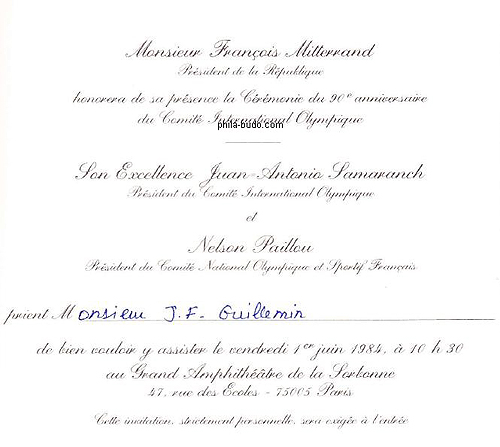 Monsieur François Mitterrand
Président de la République
honorera de sa présence la Cérémonie du 90e anniversaire
du Comité International Olympique
phila-budo.com
Son Excellence Juan-Antonio Samaranch
Président du Comité International Olympique
et
Nelson Paillou
Président du Comité National Olympique et Sportif Français
prient Monsieur J.F. Guillemin
de bien vouloir y assister le vendredi 1er juin 1984, à 10 h 30
au Grand Amphithéâtre de la Sorbonne
47, rue des Ecoles - 75005 Paris
Cette invitation, strictement personnelle, sera exigée à l'entrée